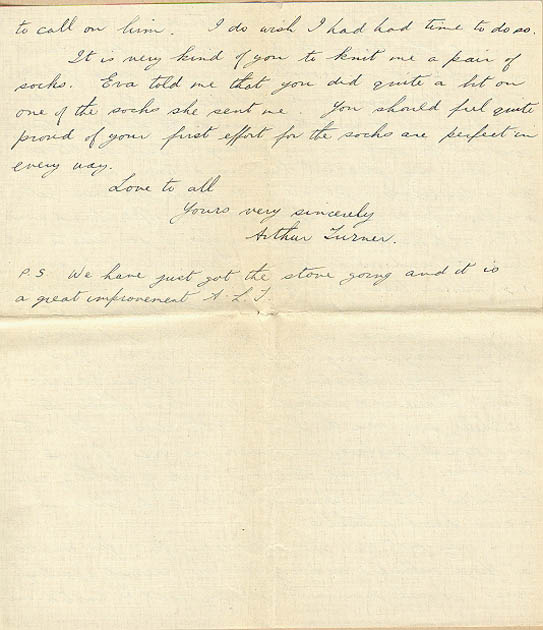 to call on him. I do wish I had had time to do so.
It is very kind of you to knit me a pair of
socks. Eva told me that you did quite a bit on
one of the socks she sent me. You should feel quite
proud of your first effort for the socks are perfect in
every way.
Love to all
Yours very sincerely
Arthur Turner.
P.S. We have just got the stove going and it is
a great improvement A-L.T